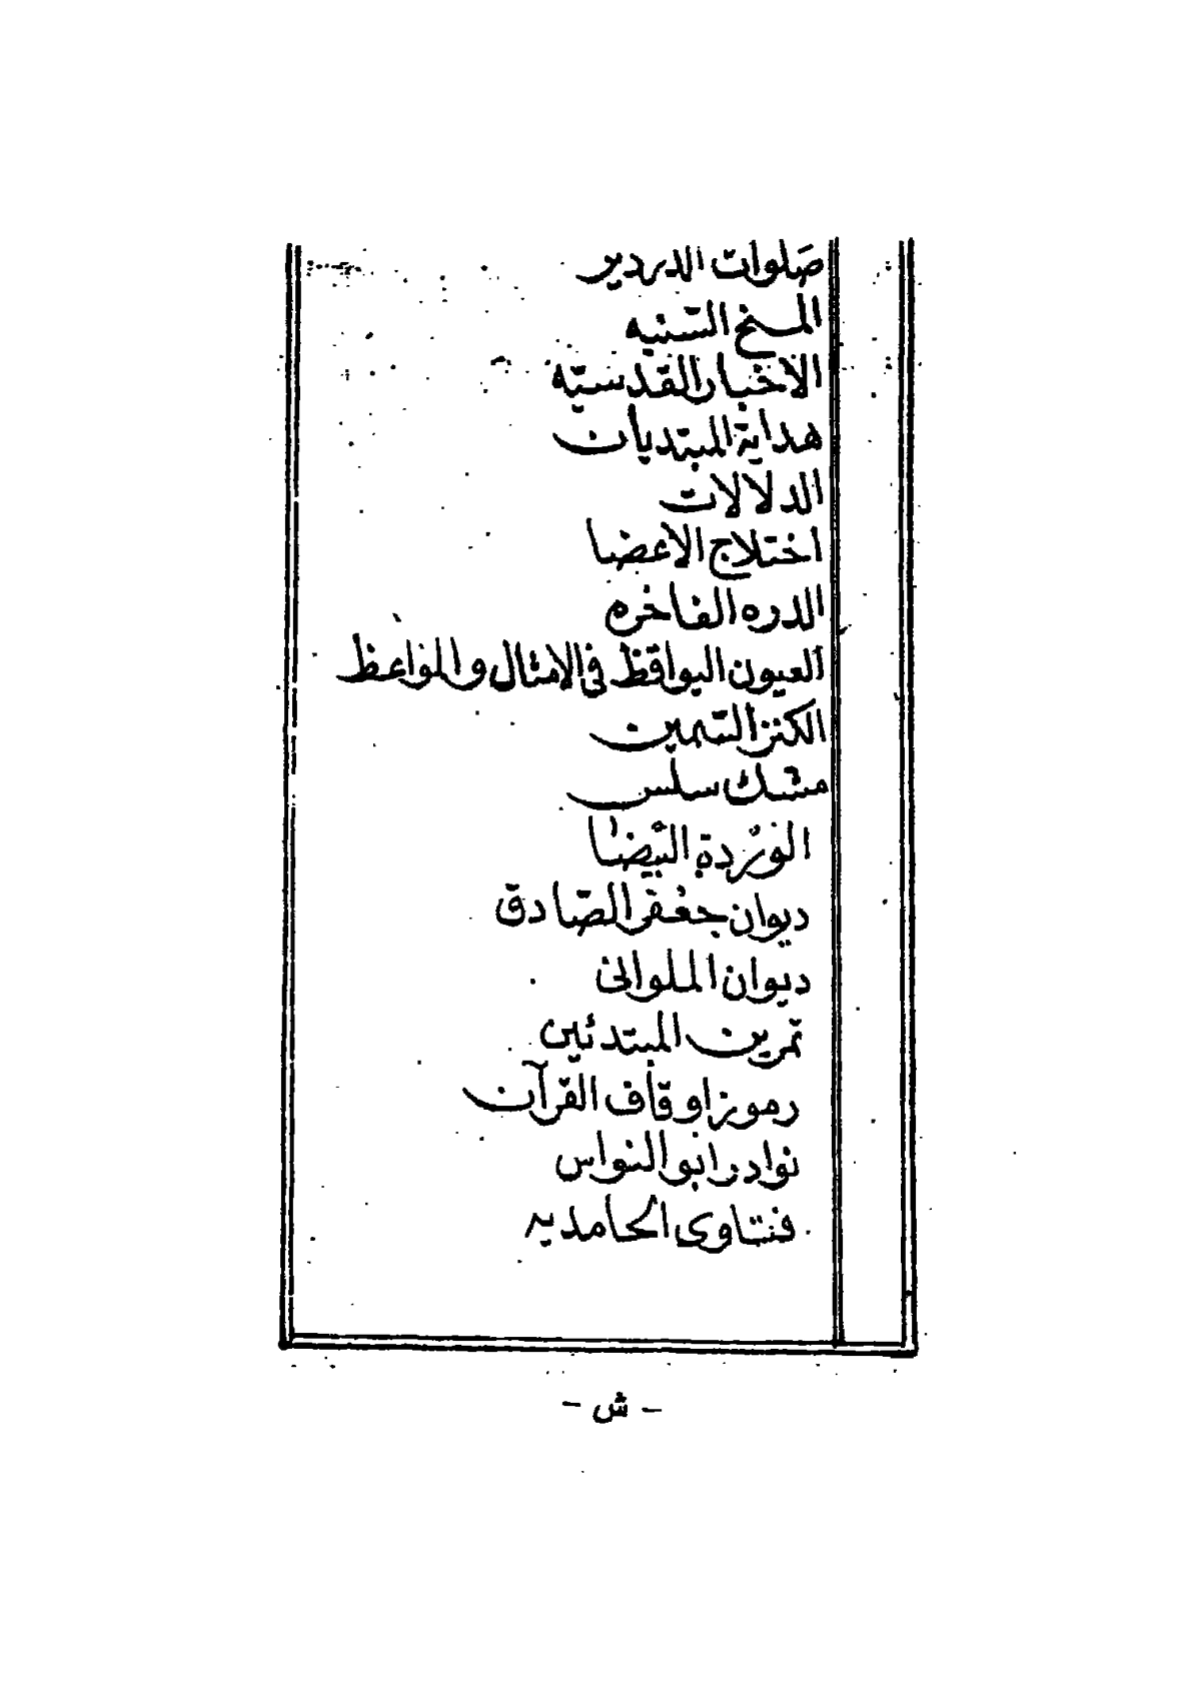 صلوات الدردير
المنح السنيه
الاخبار القدسيّه
هداية المبتديان
الدلالات
اختلاج الاعضا
الدره الفاخره
العيون اليواقظ فى الامثال والمواعظ
الكنز السّمين
مشك سلس
الورْدة البيْضا
ديوان جعْفر الصّادق
ديوان الملوانى
تمرين المبتدئين
رموز اوقاف القرآن
نوادر ابو النواس
فتاوى الحامديه
- ش -